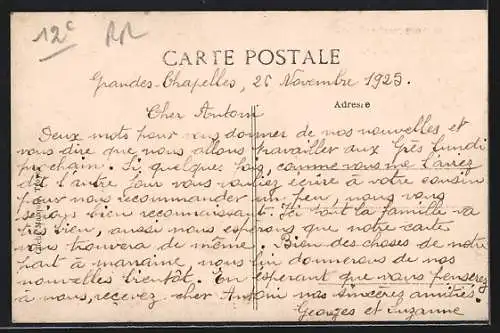 12c RR
CARTE POSTALE
Grandes-Chapelles, 26 Novembre 1925.
Adresse
Cher Antoni
Deux mots pour vous donner de nos nouvelles, et
vous dire que nous allons travailler aux Grès lundi
prochain. Si quelques fois, comme vous me l'aviez
dit l'autre jour vous vouliez écrire à votre cousin
pour nous recommander un peu, nous vous
serions bien reconnaissant. Ici tout la famille va
très bien, aussi nous espérons que notre carte
vous trouvera de même. Bien des choses de notre
part à marraine, nous lui donnerons de nos
nouvelles bientôt. En espérant que vous penserez
à nous, recevez cher Antoni nos sincères amitiés.
Georges et Suzanne